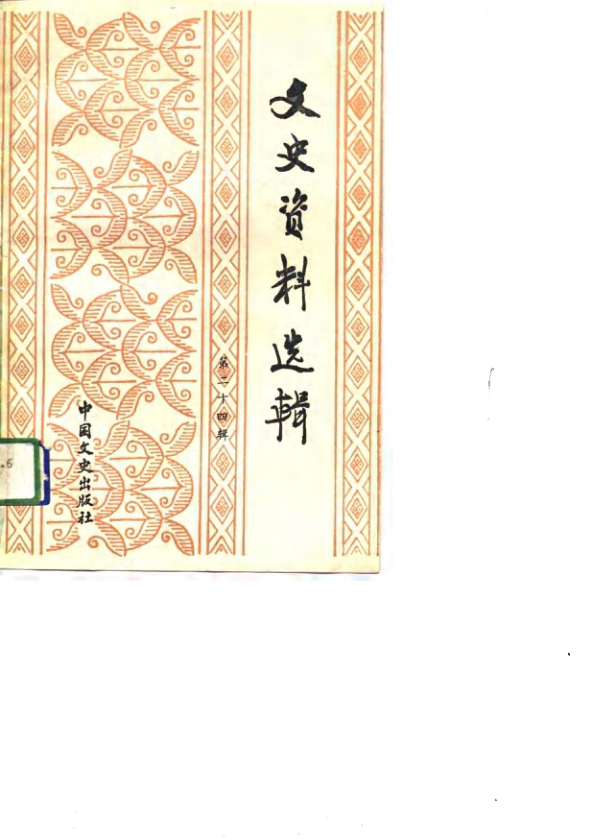 文史资料选辑
第二十四辑
中国文史出版社
.6